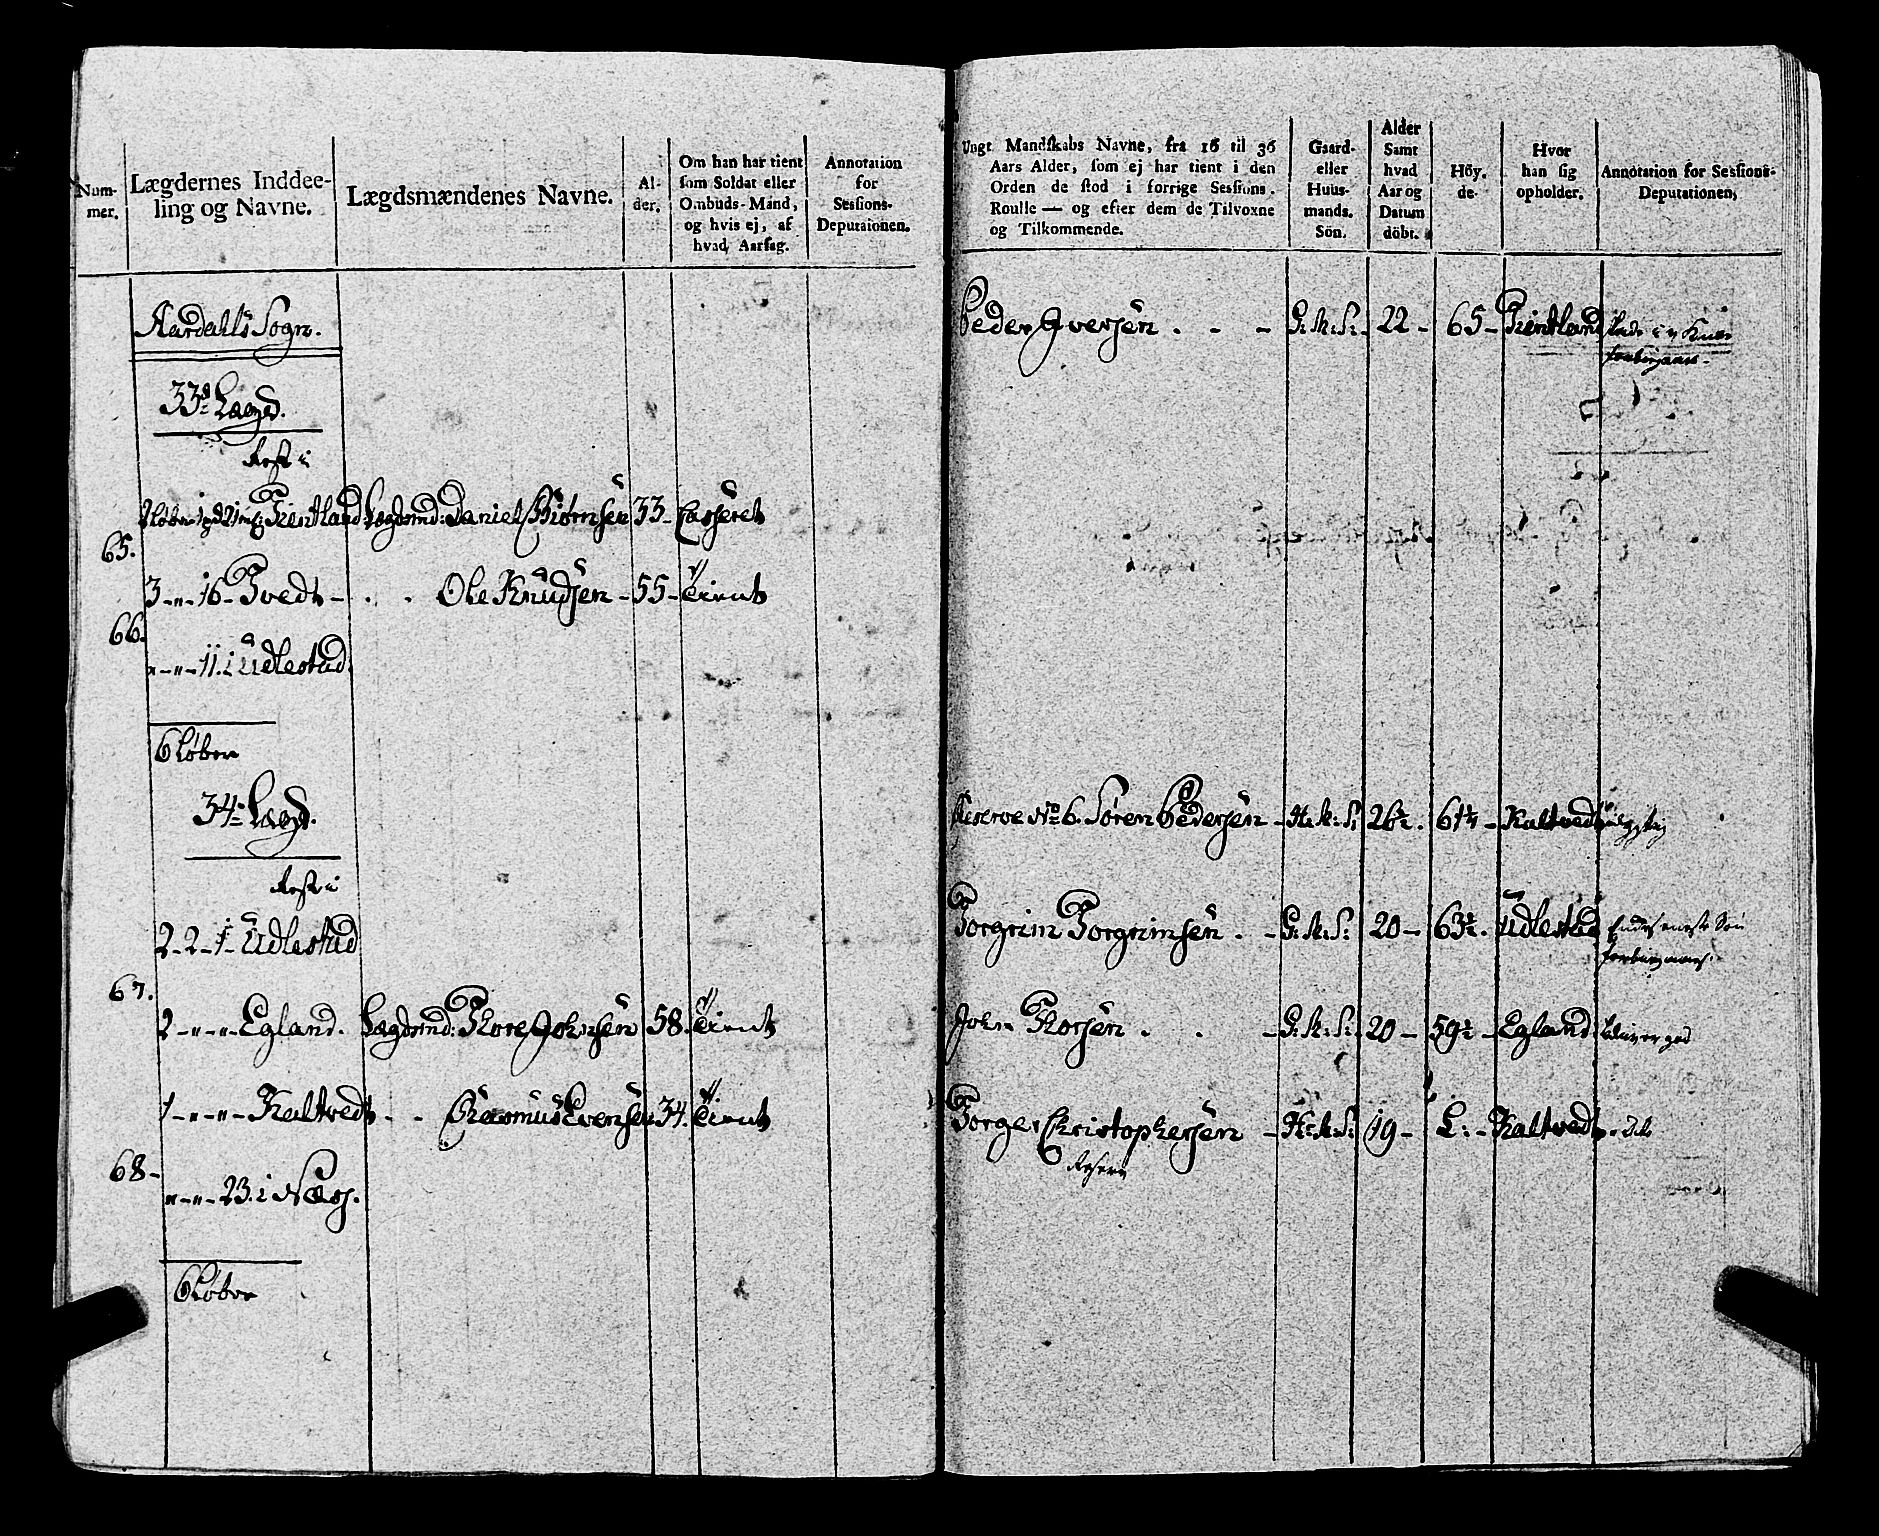 Num-
mer.
Lægdernes Inddee-
ling og Navne.
Lægdsmændenes Navne.
Al-
der.
Om han har tient
som Soldat eller
Ombuds-Mand,
og hvis ej, af
hvad Aarsag.
Annotation
for
Sessions-
Deputaionen.
Aardahls Sogn.
33d Lægd.
Rest i
Tientland Lægdsmd: Daniel Biørnsen 33 - Casseret
65.
3 - " - 16 - Tvedt - . . Ole Knudsen - 55 - Tient
66.
" - " - 11. i Udlestad.
6 Løber
34- Lægd.
Rest i
2 - 2 - 1 - Udlestad
67.
2 - " - " - Egland. Lægdsmd: Thore Johnsen 58. Tient
1 - " - " - Kaltvedt - . Rasmus Evensen 34. Tient
68 -
" - " - 23. i Næs.
6 Løber
Ungt Mandskabs Navne, fra 16 til 36
Aars Alder, som ej har tient i den
Orden de stod i forrige Sessions.
Roulle — og efter dem de Tilvoxne
og Tilkommende.
Gaard-
eller
Huus-
mands.
Sön.
Alder
Samt
hvad
Aar og
Datum
döbt.
Höy.
de-
Hvor
han sig
opholder.
Annotation for Sessions-
Deputationen,
Peder Iversen . - - G: M: S: - 22 - 65 - Tientland
Reserve No 6. Søren Pedersen - H: M: S: 26½. 61¼ - Kaltvedt
Torgrim Torgrimsen . - G: M: S: 20 - 63½. Udlestad Endes eneste Søn
John Thorsen . - - G: M: S: 20 - 59½ - Egland.
Torger Christophersen - H: M: S: 19 - L: - Kaltvedt
Reserv